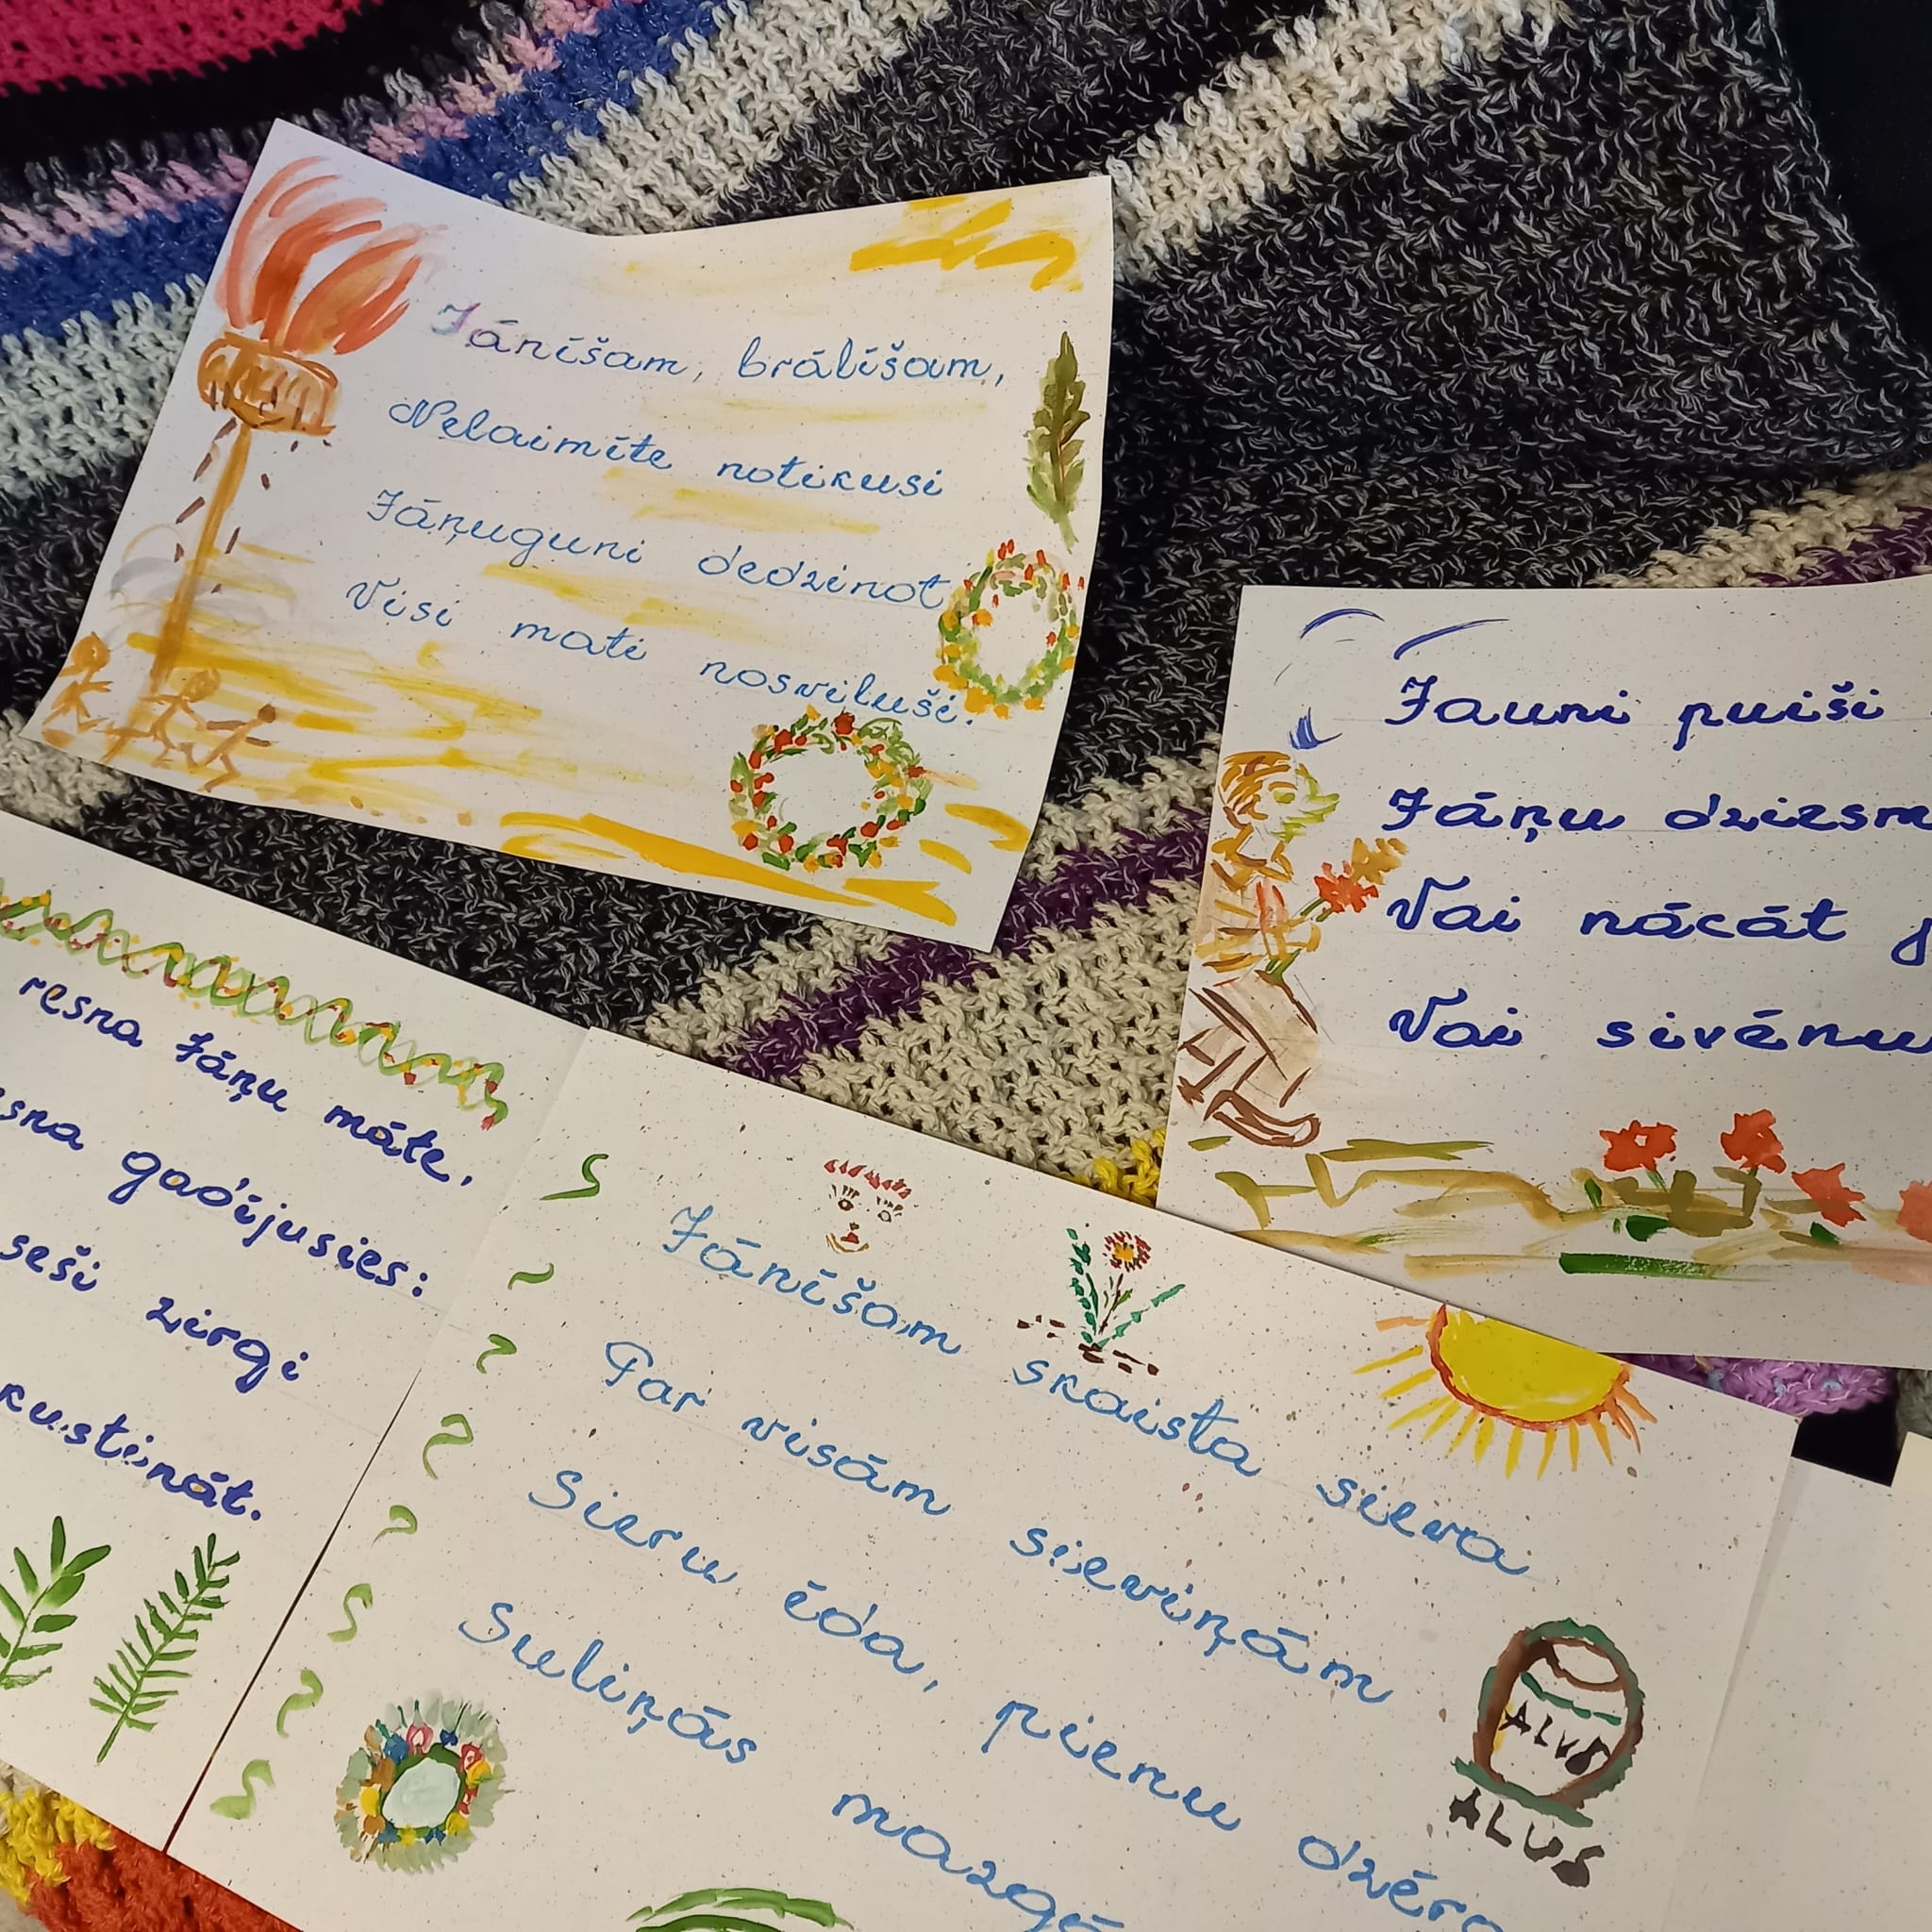 Jānīšam, brālīšam,
Nelaimīte notikusi
Jāņuguni dedzinot
Visi mati nosviluši.
Jauni puiši
Jāņu
Vai nācāt
Vai
resna Jāņu māte,
gadījusies:
seši zirgi
kustināt.
Jānīšam skaista sieva
Par visām sieviņām
Sieru ēda, pienu dzēra
Suliņās
ALUS
ALUS